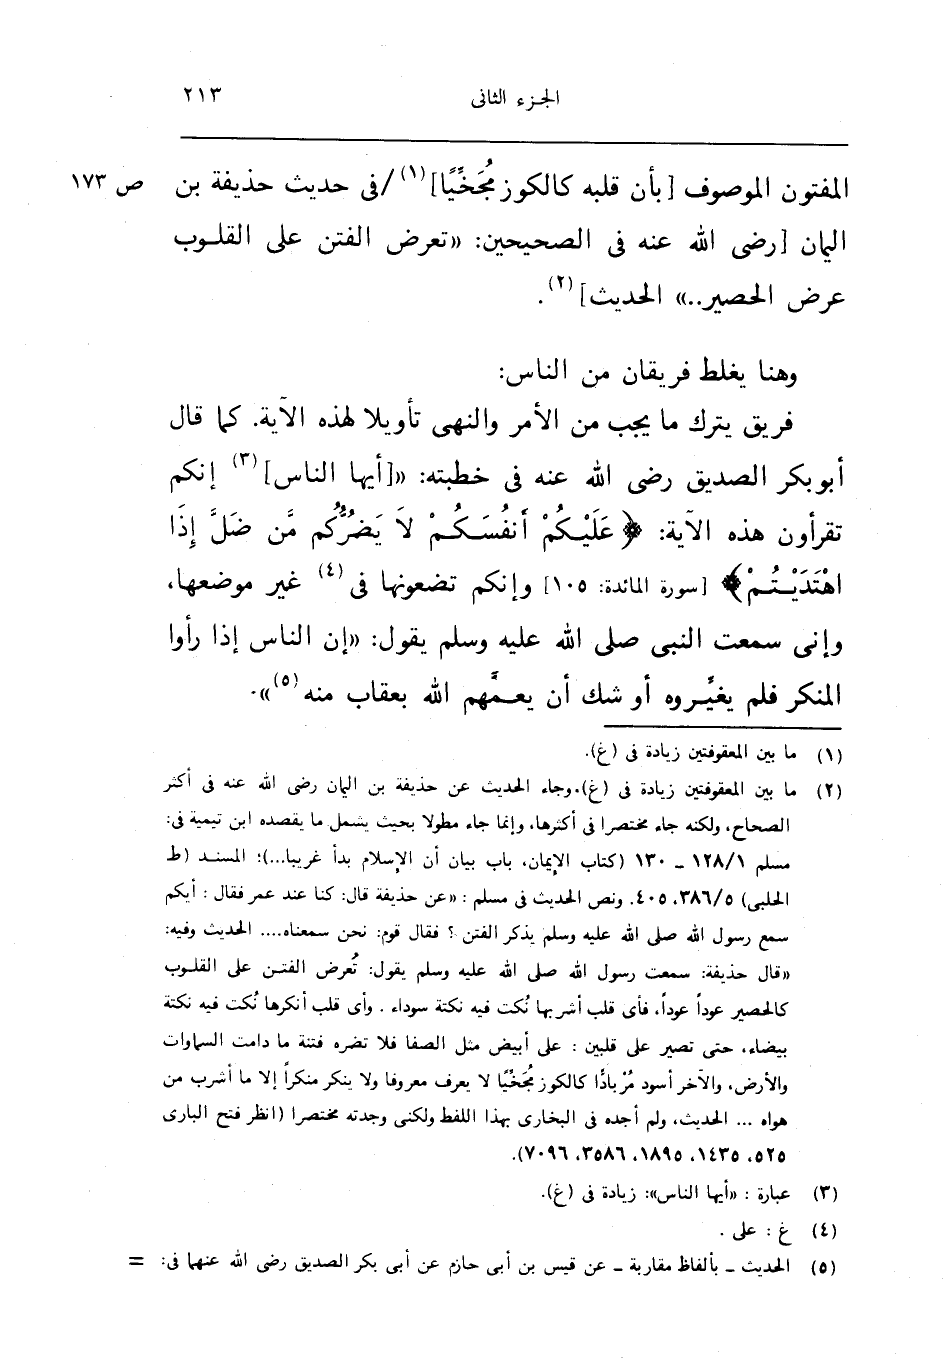 الجزء الثانى ٢١٣
المفتون الموصوف [بأن قلبه كالكوز مُجَخِّيًا](١) /فى حديث حذيفة بن ص ١٧٣
اليمان [رضى الله عنه فى الصحيحين: «تعرض الفتن على القلـوب
عرض الحصير..» الحديث](٢).
وهنا يغلط فريقان من الناس:
فريق يترك ما يجب من الأمر والنهى تأويلا لهذه الآية. كما قال
أبوبكر الصديق رضى الله عنه فى خطبته: «[أيها الناس](٣) إنكم
تقرأون هذه الآية: ﴿عَلَيْكُمْ أَنفُسَكُـمْ لاَ يَضُرُّكُم مَّن ضَلَّ إِذَا
اهْتَدَيْـتُـمْ﴾ [سورة المائدة: ١٠٥] وإنكم تضعونها فى(٤) غير موضعها،
وإنى سمعت النبى صلى الله عليه وسلم يقول: «إن الناس إذا رأوا
المنكر فلم يغيِّـروه أوشك أن يعـمَّهم الله بعقاب منه(٥)».
(١) ما بين المعقوفتين زيادة فى (غ).
(٢) ما بين المعقوفتين زيادة فى (غ).وجاء الحديث عن حذيفة بن اليمان رضى الله عنه فى أكثر
الصحاح، ولكنه جاء مختصرا فى أكثرها، وإنما جاء مطولا بحيث يشمل ما يقصده ابن تيمية فى:
مسلم ١٢٨/١ ـ ١٣٠ (كتاب الإيمان، باب بيان أن الإسلام بدأ غريبا...)؛ المسنـد (ط
الحلبى) ٣٨٦/٥، ٤٠٥. ونص الحديث فى مسلم : «عن حذيفة قال: كنا عند عمر فقال : أيكم
سمع رسول الله صلى الله عليه وسلم يذكر الفتن ؟ فقال قوم: نحن سمعناه.... الحديث وفيه:
«قال حذيفة: سمعت رسول الله صلى الله عليه وسلم يقول: تُعرض الفتـن على القلـوب
كالحصير عوداً عوداً، فأى قلب أشربها نُكت فيه نكتة سوداء . وأى قلب أنكرها نُكت فيه نكتة
بيضاء، حتى تصير على قلبين : على أبيض مثل الصفا فلا تضره فتنة ما دامت السماوات
والأرض، والآخر أسود مُرْبادًّا كالكوز مُجَخِّيًا لا يعرف معروفا ولا ينكر منكراً إلا ما أشرب من
هواه ... الحديث، ولم أجده فى البخارى بهذا اللفظ ولكنى وجدته مختصرا (انظر فتح البارى
٥٢٥، ١٤٣٥، ١٨٩٥، ٣٥٨٦، ٧٠٩٦).
(٣) عبارة : «أيها الناس»: زيادة فى (غ).
(٤) غ : على .
(٥) الحديث ـ بألفاظ مقاربة ـ عن قيس بن أبى حازم عن أبى بكر الصديق رضى الله عنهما فى: =